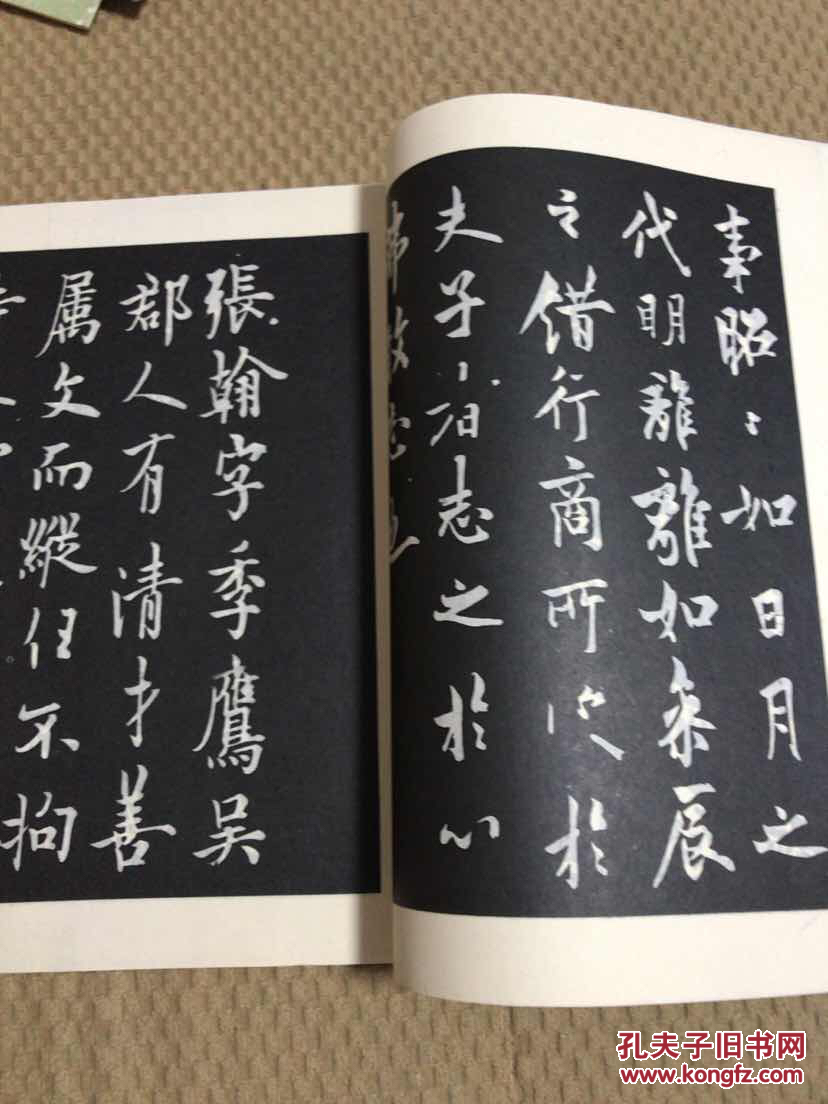 事昭〻如日月之
代明離離如參辰
之錯行商所受於
夫子者志之於心
弗敢忘也
張翰字季鷹吳
郡人有清才善
属文而縱任不拘
孔夫子旧书网
www.kongfz.com